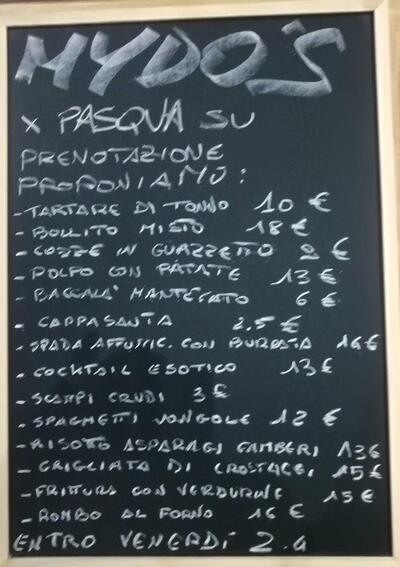 MYDO'S
x PASQUA SU
PRENOTAZIONE
PROPONIAMO:
-TARTARE DI TONNO 10 €
-BOLLITO MISTO 18 €
-COZZE IN GUAZZETTO €
-POLPO CON PATATE 13 €
-BACCALA' MANTECATO 6 €
- CAPPASANTA 2.5 €
-SPADA AFFUMIC. CON BURRATA 16 €
- COCKTAIL ESOTICO 13 €
- SCAMPI CRUDI 3 €
- SPAGHETTI VONGOLE 12 €
-RISOTTO ASPARAGI GAMBERI 13 €
- GRIGLIATA DI CROSTACEI 15 €
-FRITTURA CON VERDURINE 15 €
- ROMBO AL FORNO 16 €
ENTRO VENERDÌ 2.4